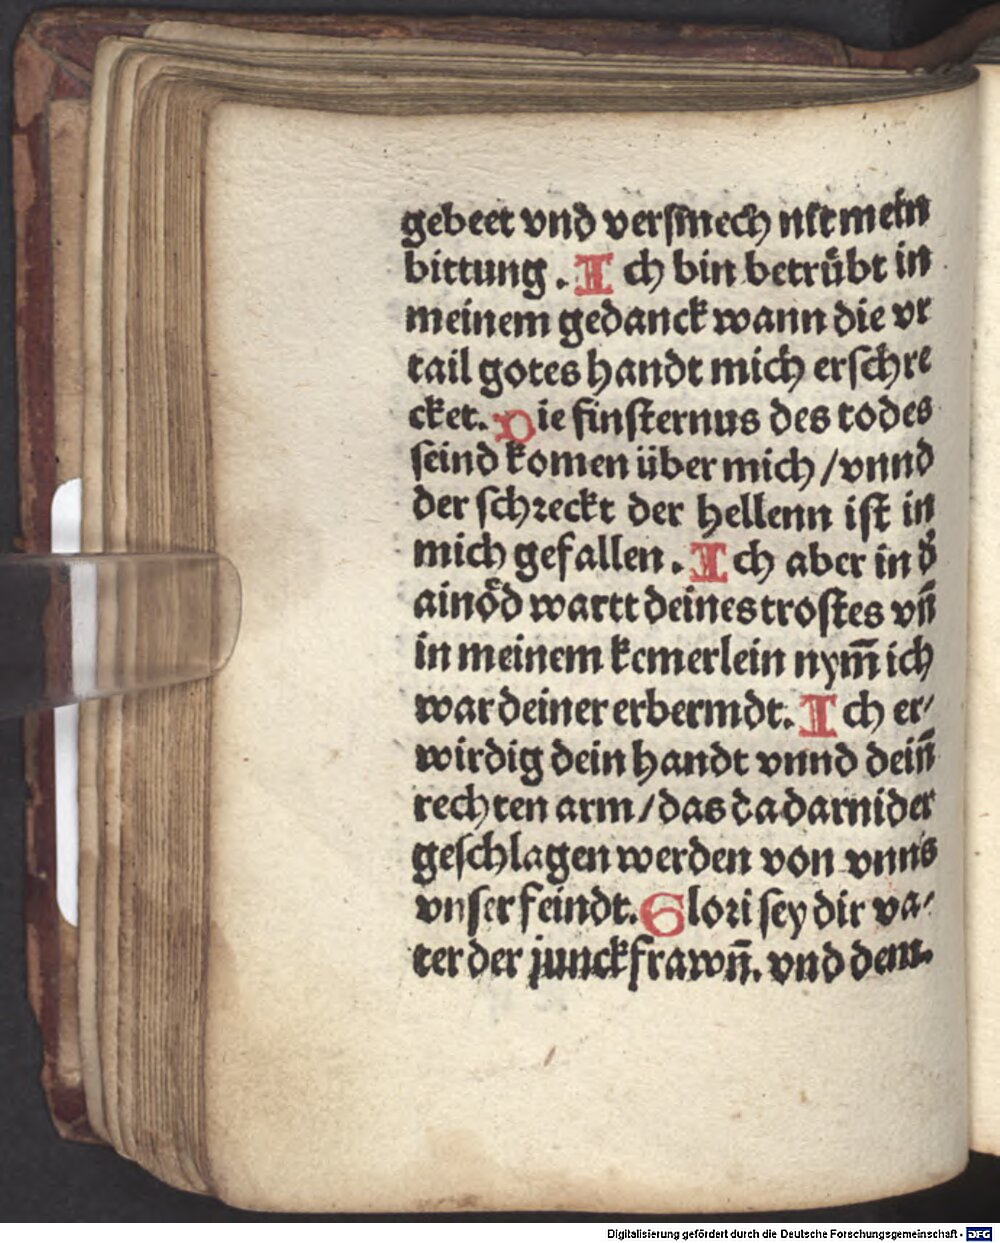 gebeet vnd versmech nit mein
bittung. Ich bin betrübt in
meinem gedanck wann die vr
tail gotes handt mich erschre
cket. Die finsternus des todes
seind komen über mich / vnnd
der schreckt der hellenn ist in
mich gefallen. Ich aber in d̕
ainöd wartt deines trostes vn̄
in meinem kemerlein nym̄ ich
war deiner erbermdt. Ich er⸗
wirdig dein handt vnnd dein̄
rechten arm / das da darnider
geschlagen werden von vnns
vnser feindt. Glori sey dir va⸗
ter der junckfrawn̄. vnd dem.
Digitalisierung gefördert durch die Deutsche Forschungsgemeinschaft - DFG